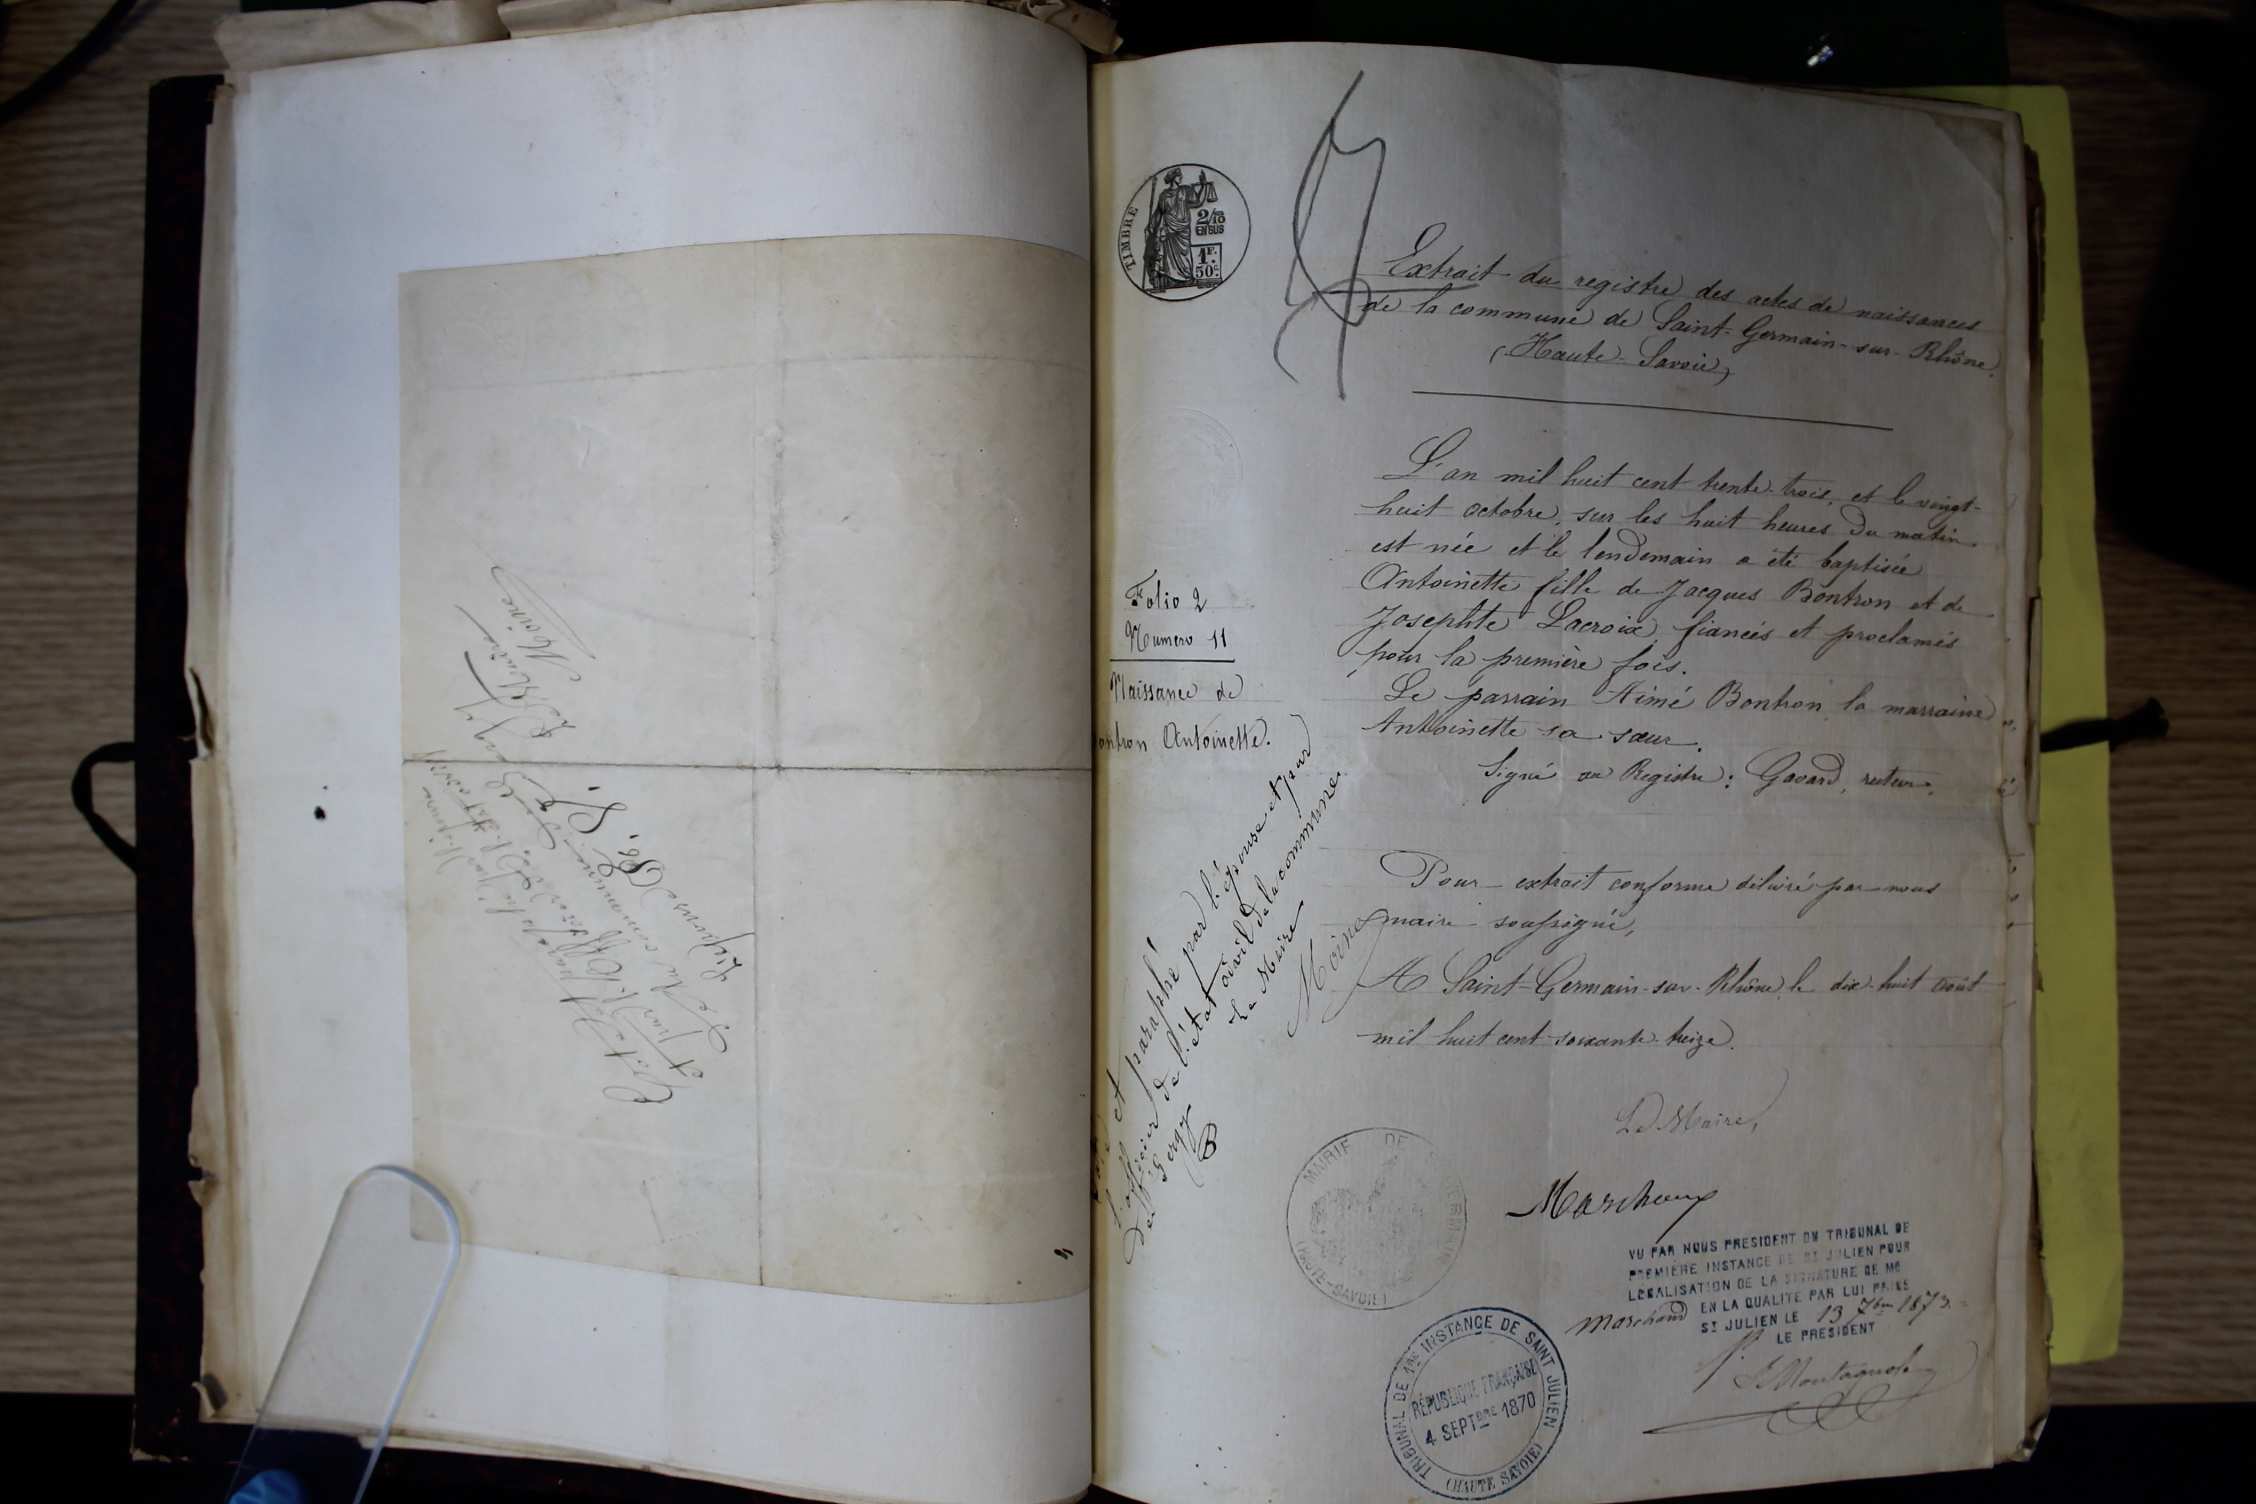 TIMBRE
2/10
EN SUS
1F.
50c.
Extrait du registre des actes de naissances
de la commune de Saint-Germain-sur-Rhône.
(Haute-Savoie)
L'an mil huit cent trente-trois, et le vingt-
huit octobre, sur les huit heures du matin
est née et le lendemain a été baptisée
Antoinette fille de Jacques Bontron et de
Josephte Lacroix fiancés et proclamés
pour la première fois.
Le parrain Aimé Bontron la marraine
Antoinette sa sœur.
Signé au Registre: Gavard, recteur.
Folio 2
Numero 11
Naissance de
ontron Antoinette.
Pour extrait conforme délivré par nous
maire soussigné,
A Saint-Germain-sur-Rhône le dix-huit août
mil huit cent soixante-treize.
Le Maire,
et paraphé par l'épouse et par
l'officier de l'état civil de la commune
de Sergy
Le Maire
Moine
B
MAIRIE DE GERMAIN
(HAUTE-SAVOIE)
VU PAR NOUS PRESIDENT DU TRIBUNAL DE
PREMIÈRE INSTANCE DE ST JULIEN POUR
LEGALISATION DE LA SIGNATURE DE MR
Marchand EN LA QUALITE PAR LUI PRISE
ST JULIEN LE 13 7bre 1873.
LE PRESIDENT
TRIBUNAL DE 1RE INSTANCE DE SAINT JULIEN
RÉPUBLIQUE FRANÇAISE
4 SEPTBRE 1870
(HAUTE SAVOIE)
et paraphé par
Le Maire
Moine